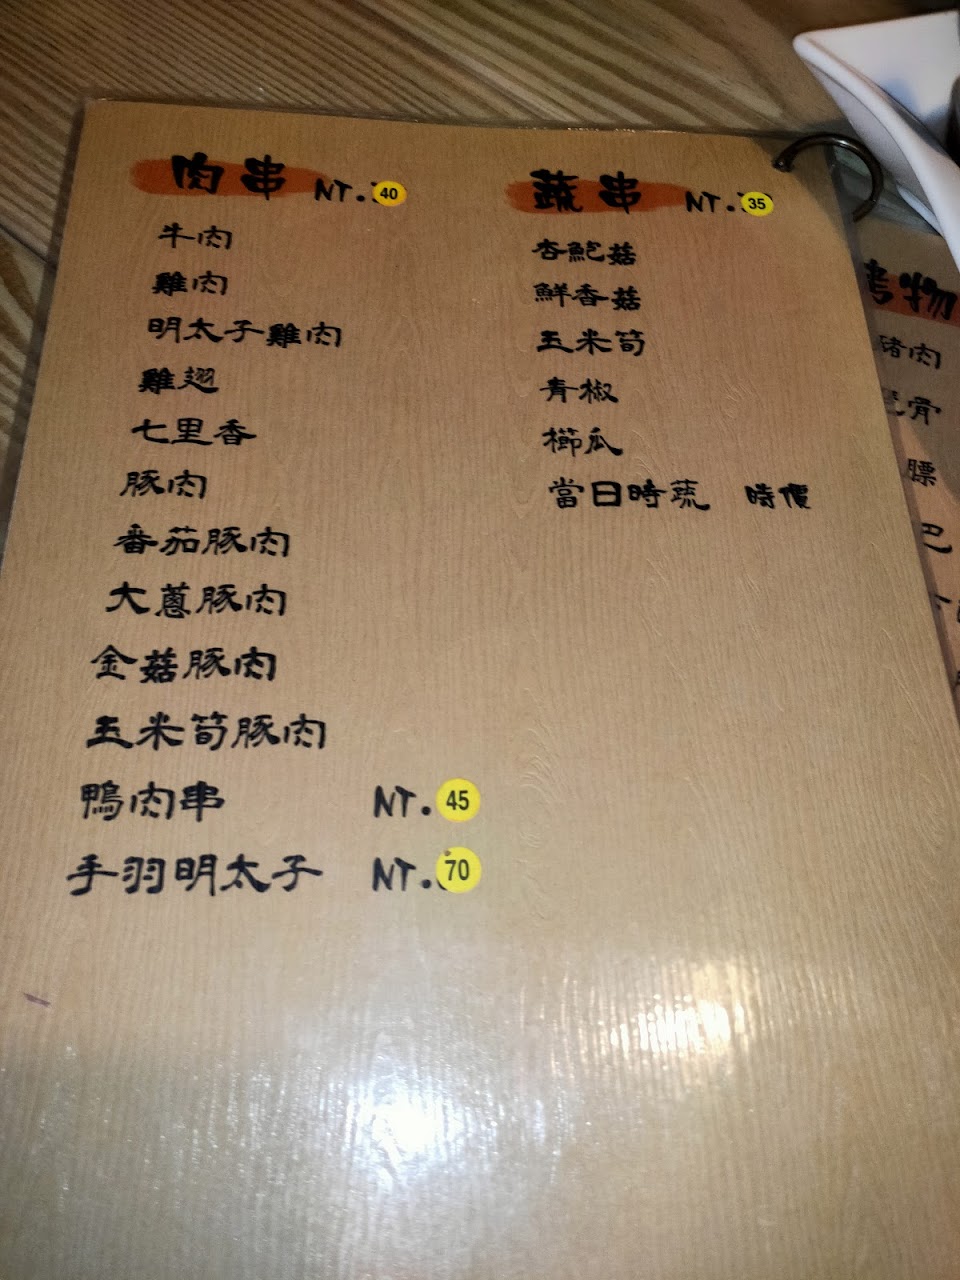 肉串 NT. 40
牛肉
雞肉
明太子雞肉
雞翅
七里香
豚肉
番茄豚肉
大蔥豚肉
金菇豚肉
玉米筍豚肉
鴨肉串 NT. 45
手羽明太子 NT. 70
蔬串 NT. 35
杏鮑菇
鮮香菇
玉米筍
青椒
櫛瓜
當日時蔬 時價
烤物
豬肉
骨
膘
巴